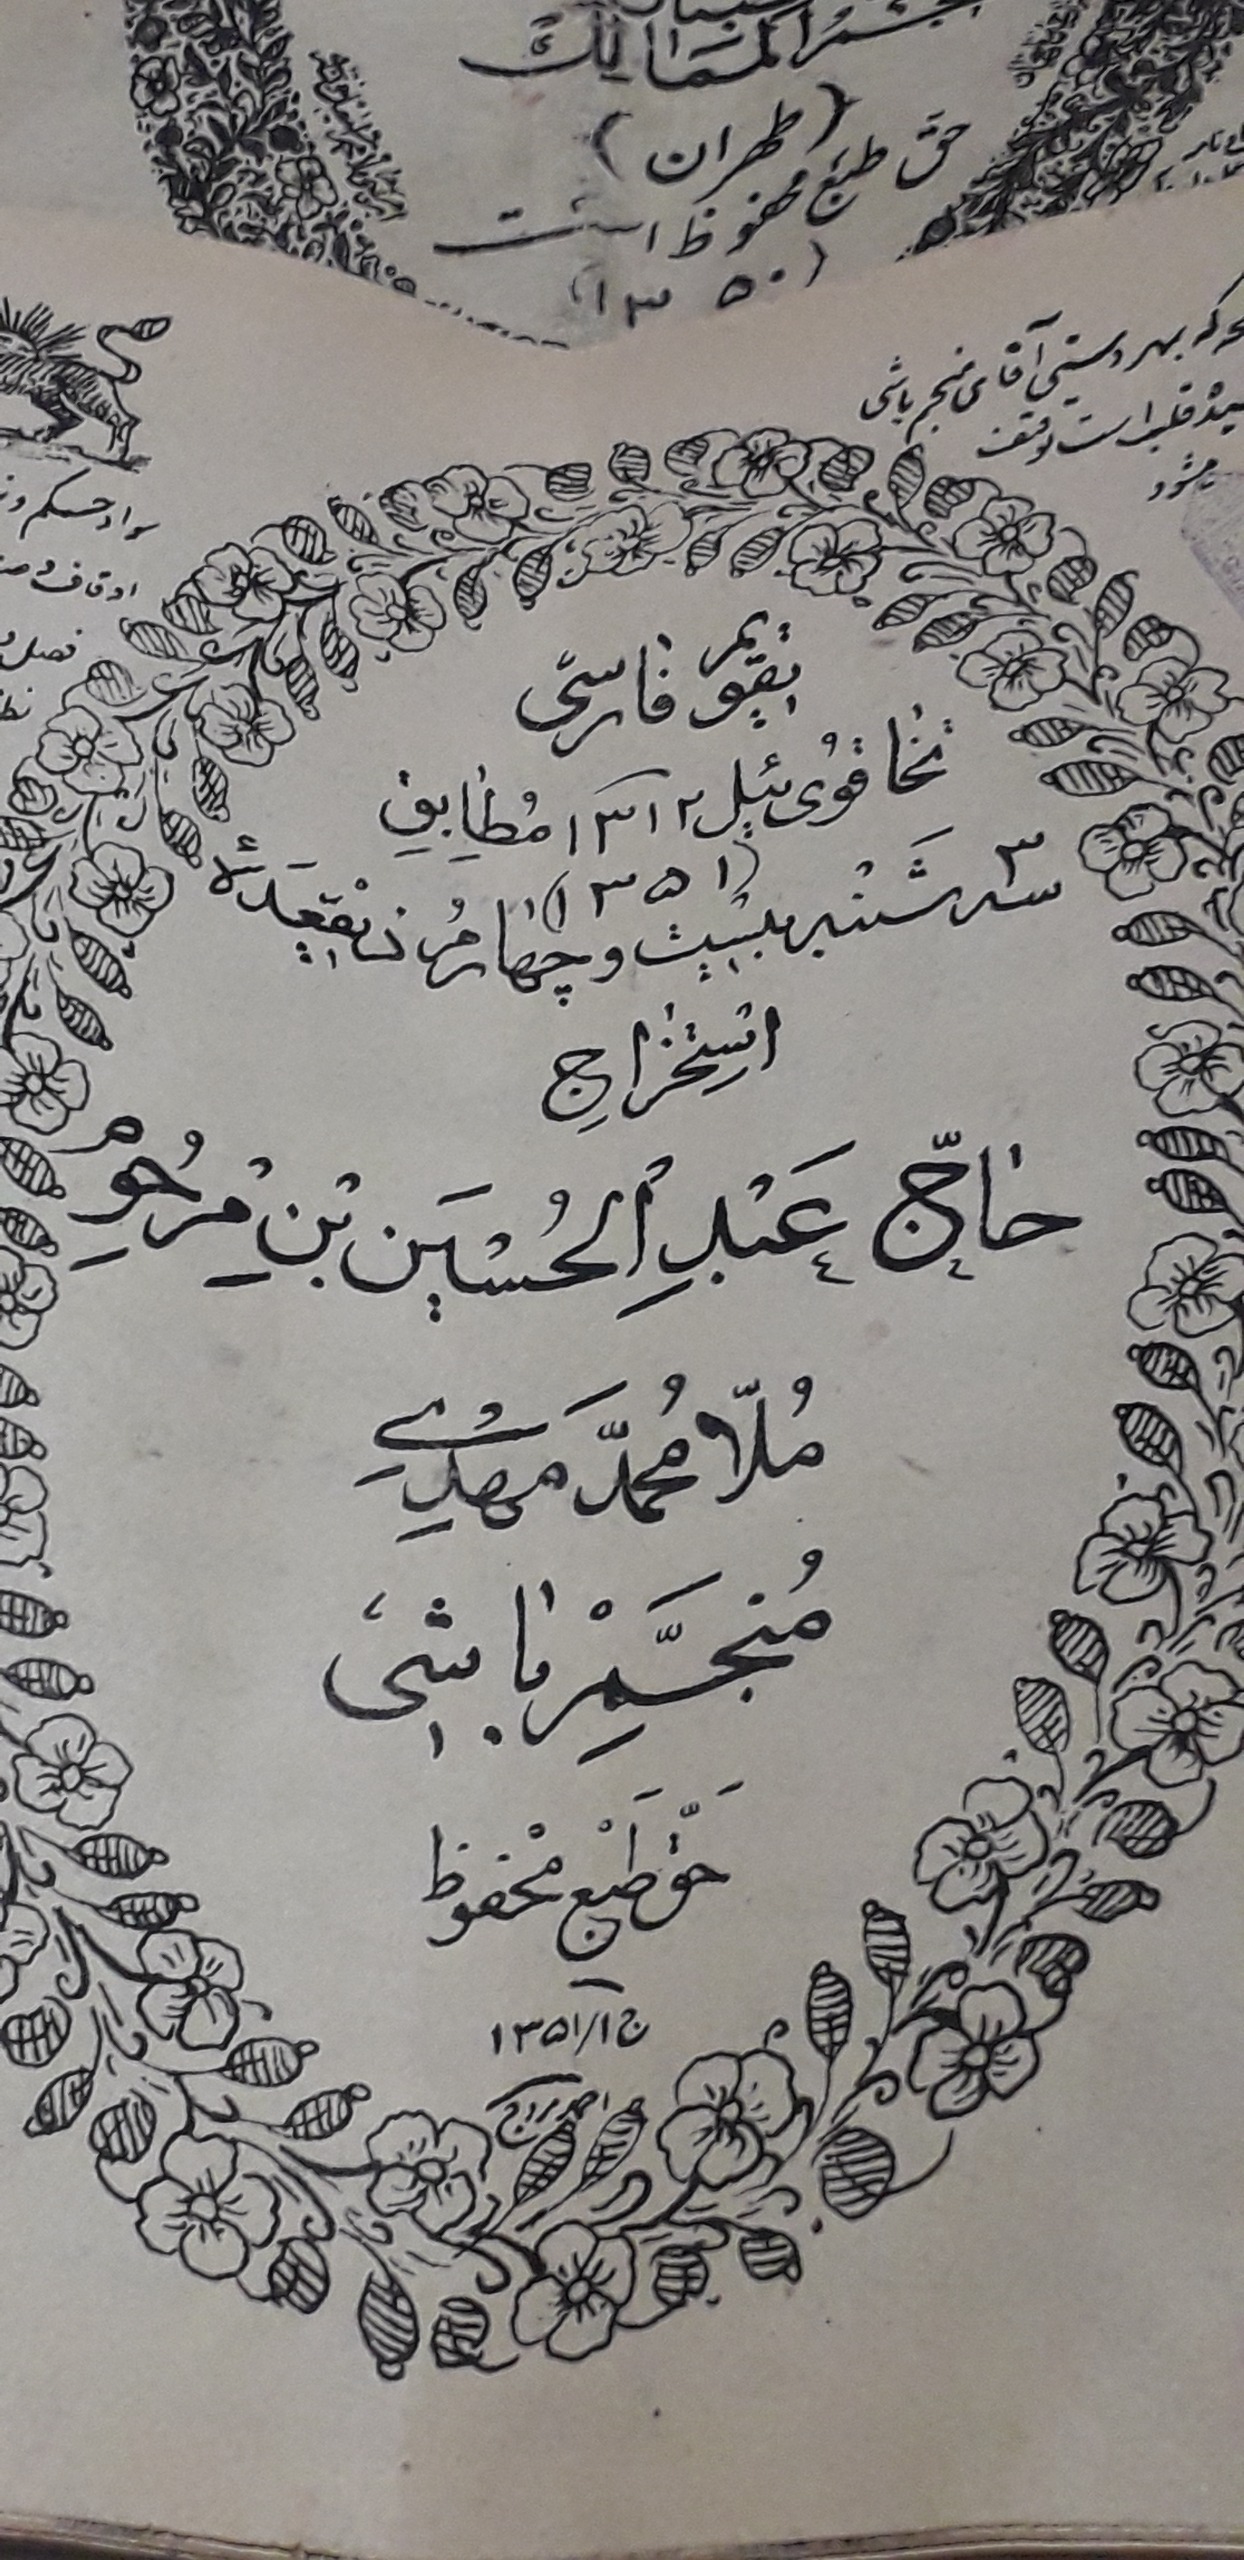 الممالک
(طهران)
حق طبع محفوظ است
(۱۳۵۰)
که بهر دستی آقای منجم باشی
قلب است توقف
میشود
سواد حکم
اوقاف و
فصل
تقویم فارسی
تخاقوی ئیل ۱۳۱۲ مطابق
(۱۳۵۱)
۳ سه شنبه بیست و چهارم ذیقعده
استخراج
حاجّ عَبدِ الحُسَین بْن مرحُوم
مُلّا مُحمَّد مَهدِی
مُنجّم باشی
حَقّ طَبْع مَحْفوظ
ج۱/۱۳۵۱